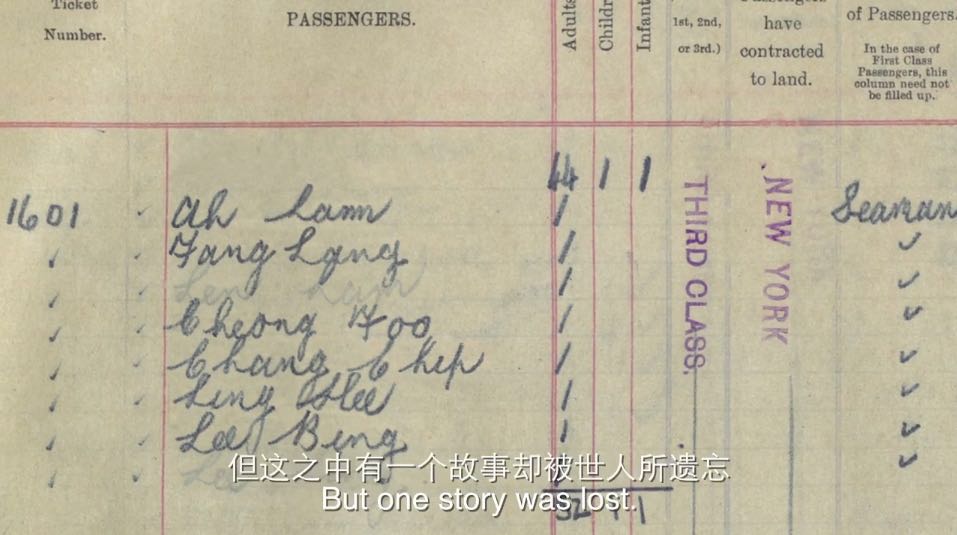 Ticket
Number.
PASSENGERS.
Adults
Infant
1st, 2nd,
or 3rd.)
have
contracted
to land.
of Passengers.
In the case of
First Class
Passengers, this
column need not
be filled up.
44 1 1
1601 Ah Lam Seaman
Fang Lang
Len Lam
Cheong Foo
Chang Chip
Ling Hee
Lee Bing
THIRD CLASS.
NEW YORK
但这之中有一个故事却被世人所遗忘
But one story was lost.